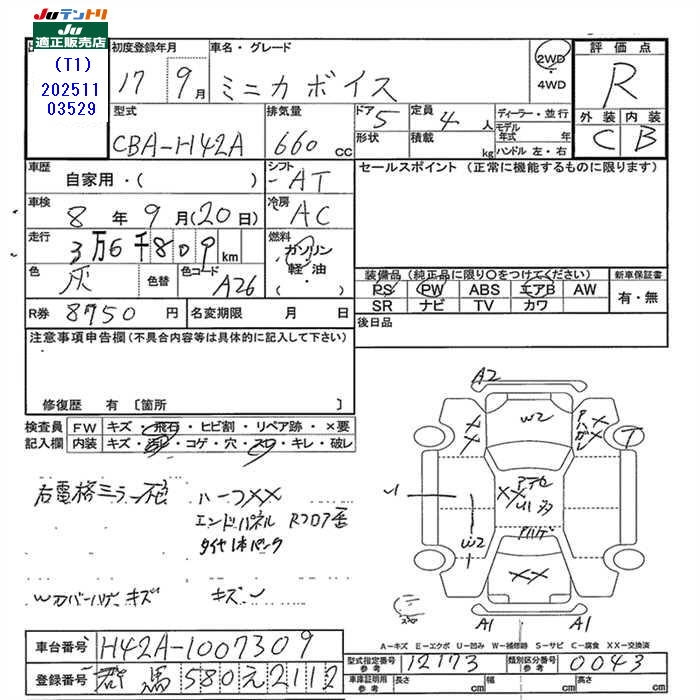 JUテントリ
JU
適正販売店
(T1)
202511
03529
初度登録年月
17 9月
車名・グレード
ミニカ ボイス
2WD
・
4WD
評価点
R
外装 内装
C B
型式
CBA-H42A
排気量
660 cc
ドア 5
形状
定員 4 人
積載 kg
ディーラー・並行
モデル年式 年
ハンドル 左・右
車歴
自家用・( )
シフト
AT
セールスポイント (正常に機能するものに限ります)
車検
8 年 9 月(20日)
冷房
AC
走行
3万6千809 km
燃料
ガソリン
軽・油
・
( )
色
灰
色替
色コード
A26
装備品(純正品に限り○をつけてください)
新車保証書
PS PW ABS エアB AW
SR ナビ TV カワ
有・無
R券 8750 円
名変期限 月 日
後日品
注意事項申告欄(不具合内容等は具体的に記入して下さい)
修復歴 有 〔箇所 〕
検査員
記入欄
FW キズ・飛石・ヒビ割・リペア跡・×要
内装 キズ・汚レ・コゲ・穴・スレ・キレ・破レ
A2
W2
XX
XX
T
XX
W2
XX
A1
A1
エンドパネル Rフロア
タイヤ1本パンク
キズ
A－キズ E－エクボ U－凹み W－補修跡 S－サビ C－腐食 XX－交換済
車台番号
H42A-1007309
登録番号
群馬580え2112
型式指定番号
参考
12173
類別区分番号
参考
0043
車庫証明用
参考
長さ cm
幅 cm
高さ cm